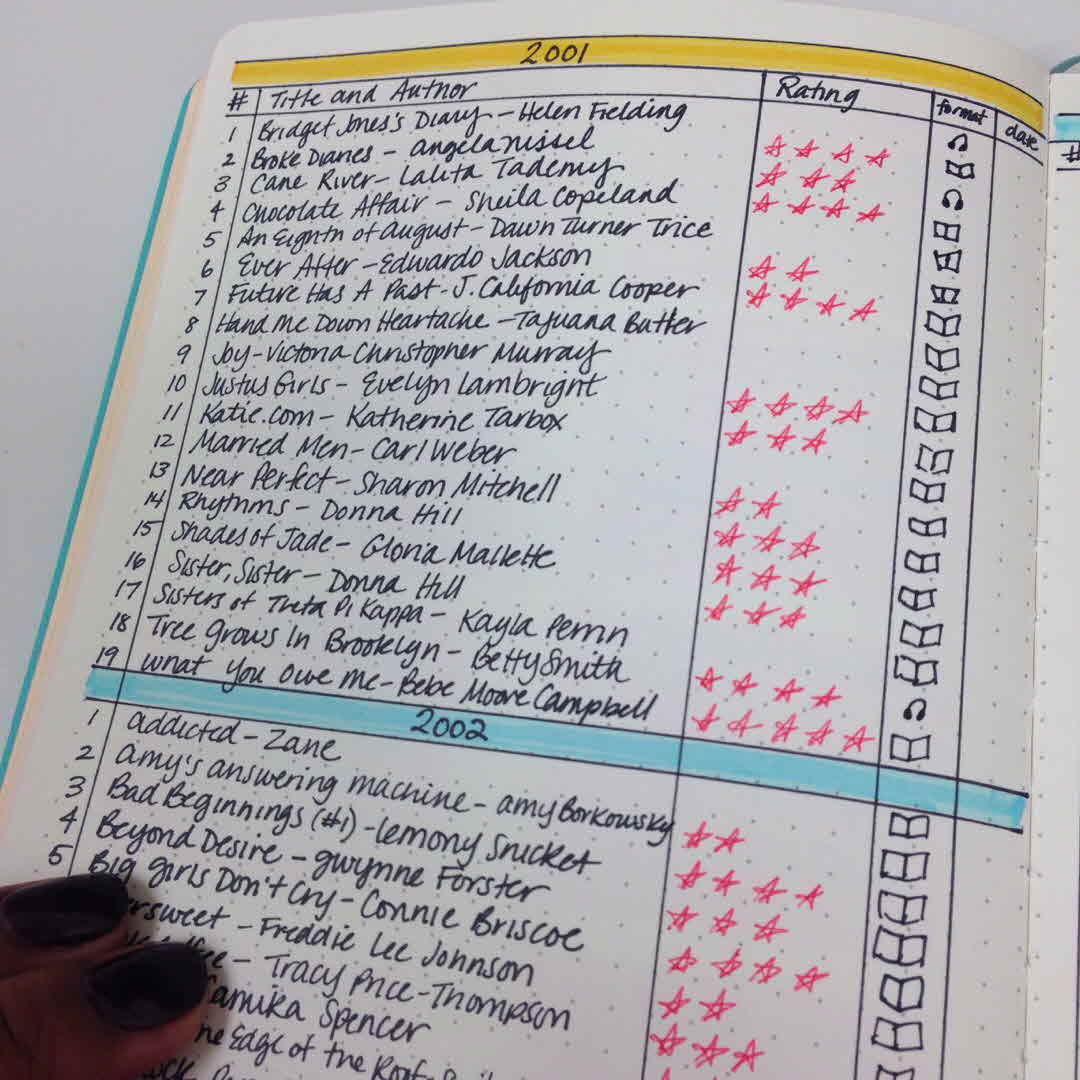 2001
# Title and Author Rating format date
1 Bridget Jones's Diary - Helen Fielding
2 Broke Diaries - angela nissel
3 Cane River - Lalita Tademy
4 Chocolate Affair - Sheila Copeland
5 An Eighth of august - Dawn Turner Trice
6 Ever After - Edwardo Jackson
7 Future Has A Past - J. California Cooper
8 Hand Me Down Heartache - Tajuana Butler
9 Joy - Victoria Christopher Murray
10 Justus Girls - Evelyn Lambright
11 Katie.com - Katherine Tarbox
12 Married Men - Carl Weber
13 Near Perfect - Sharon Mitchell
14 Rhythms - Donna Hill
15 Shades of Jade - Gloria Mallette
16 Sister, Sister - Donna Hill
17 Sisters of Theta Pi Kappa - Kayla Perrin
18 Tree Grows In Brooklyn - Betty Smith
19 What You Owe Me - Bebe Moore Campbell
2002
1 addicted - Zane
2 amy's answering machine - amy Borkowsky
3 Bad Beginnings (#1) - Lemony Snicket
4 Beyond Desire - gwynne Forster
5 Big girls Don't Cry - Connie Briscoe
ersweet - Freddie Lee Johnson
- Tracy Price-Thompson
amika Spencer
he Edge of the Roof
#